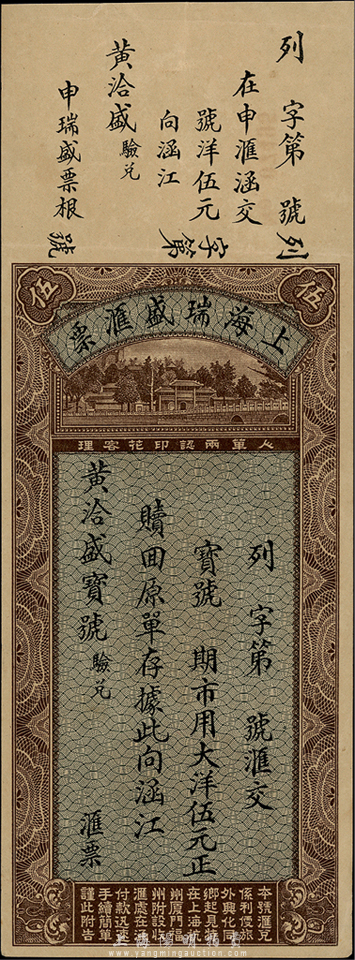 列 字第 號
在申滙涵交
號洋伍元
向涵江
黃洽盛驗兌
申瑞盛票根
列字第 號
伍
伍
上海瑞盛滙票
人單兩認印花客理
列 字第 號滙交
寶號 期市用大洋伍元正
贖回原單存據此向涵江
黃洽盛寶號驗兌 滙票
本號滙兌
係利便旅
外興化同
鄉起見
在上海
州廈門福
州附設收
滙處在涵
付款迅速
手續簡單
謹此附告
www.yangmingauction.com